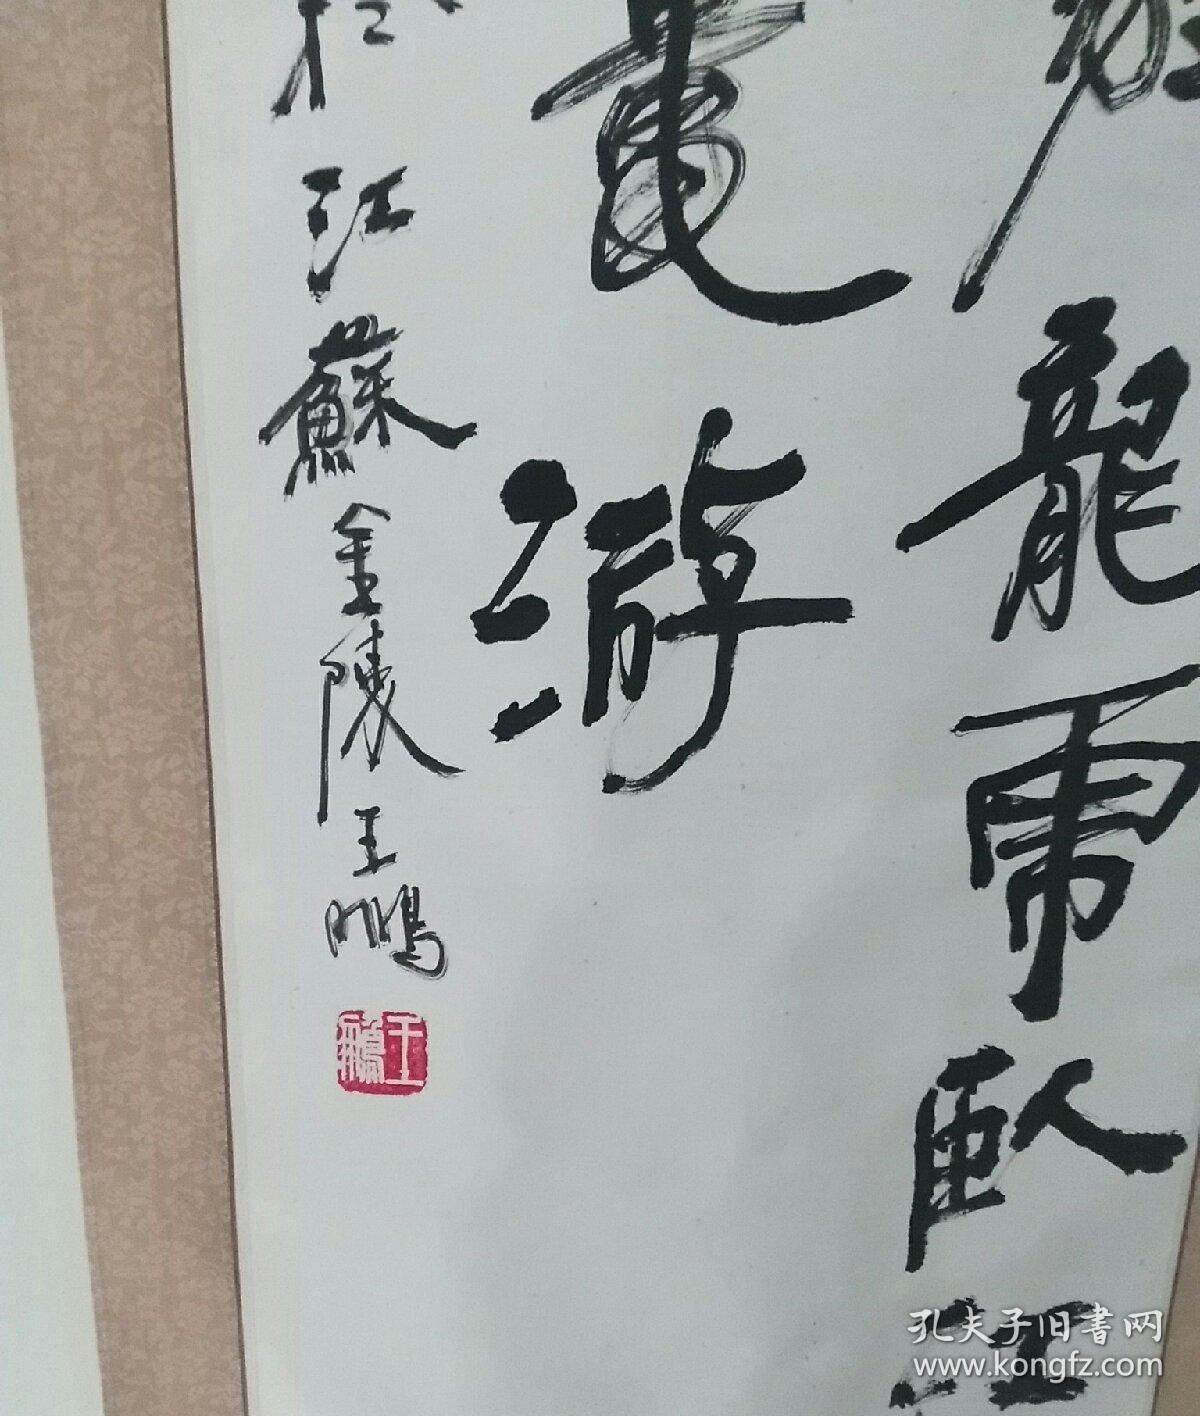 龍虎臥江
游
於江蘇金陵王鵬
王鵬
孔夫子旧書网
www.kongfz.com